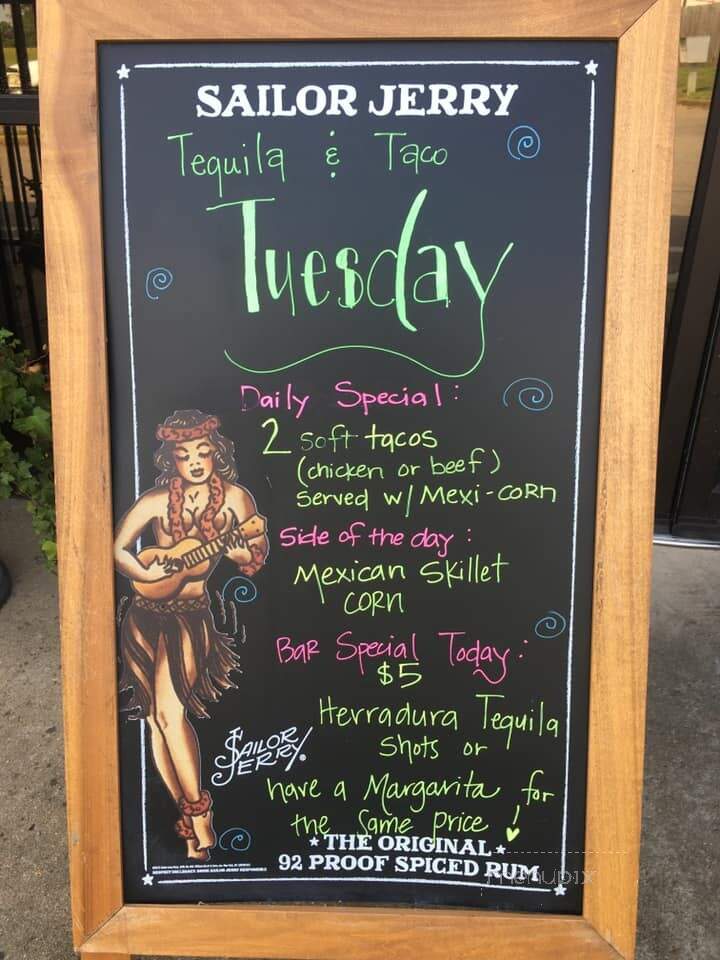 SAILOR JERRY
Tequila & Taco
Tuesday
Daily Special:
2 soft tacos
(chicken or beef)
Served w/ Mexi-corn
Side of the day:
Mexican Skillet
corn
Bar Special Today:
$5
Herradura Tequila
Shots or
have a Margarita for
the same price!
SAILOR
JERRY®
THE ORIGINAL
92 PROOF SPICED RUM
menupix